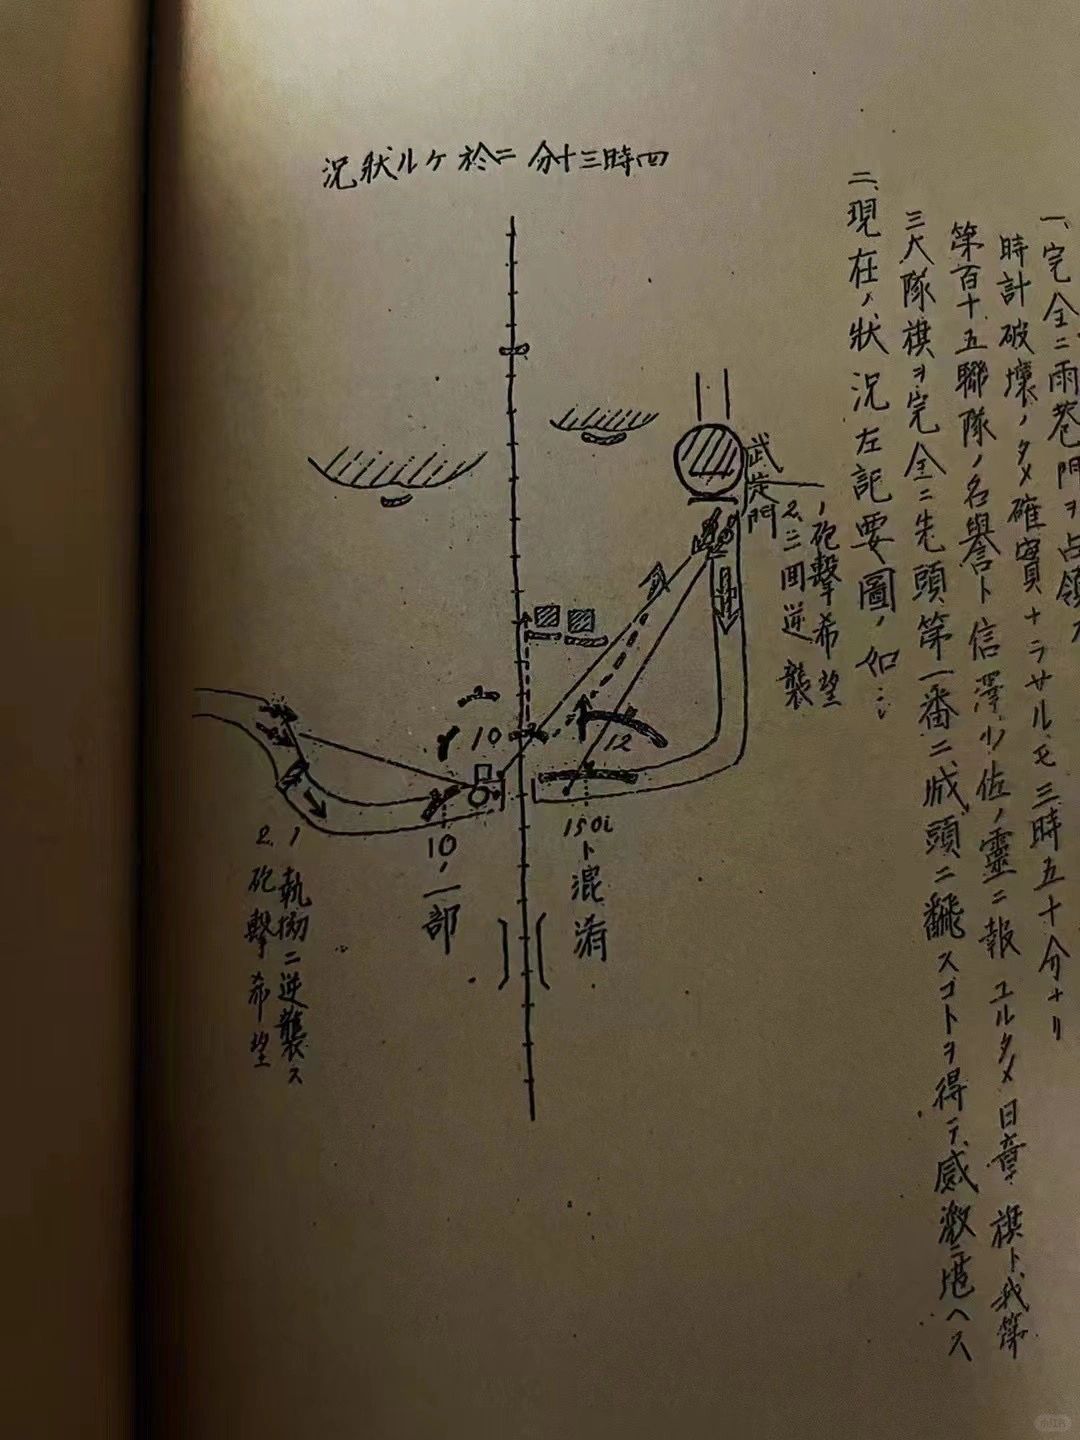 一、完全ニ雨巻門ヲ占領
時計破壊ノタメ確實ナラサルモ三時五十分ナリ
第百十五聯隊ノ名譽ト信澤少佐ノ靈ニ報ユルタメ日章旗ト我第
三大隊旗ヲ完全ニ先頭第一番ニ城頭ニ飜スコトヲ得テ感激ニ堪ヘス
二、現在ノ狀況左記要圖ノ如シ
四時三十分ニ於ケル狀況
武定門
1、砲擊希望
2、三回逆襲
10
12
150i
ト混淆
10ノ一部
1、執拗ニ逆襲ス
2、砲擊希望